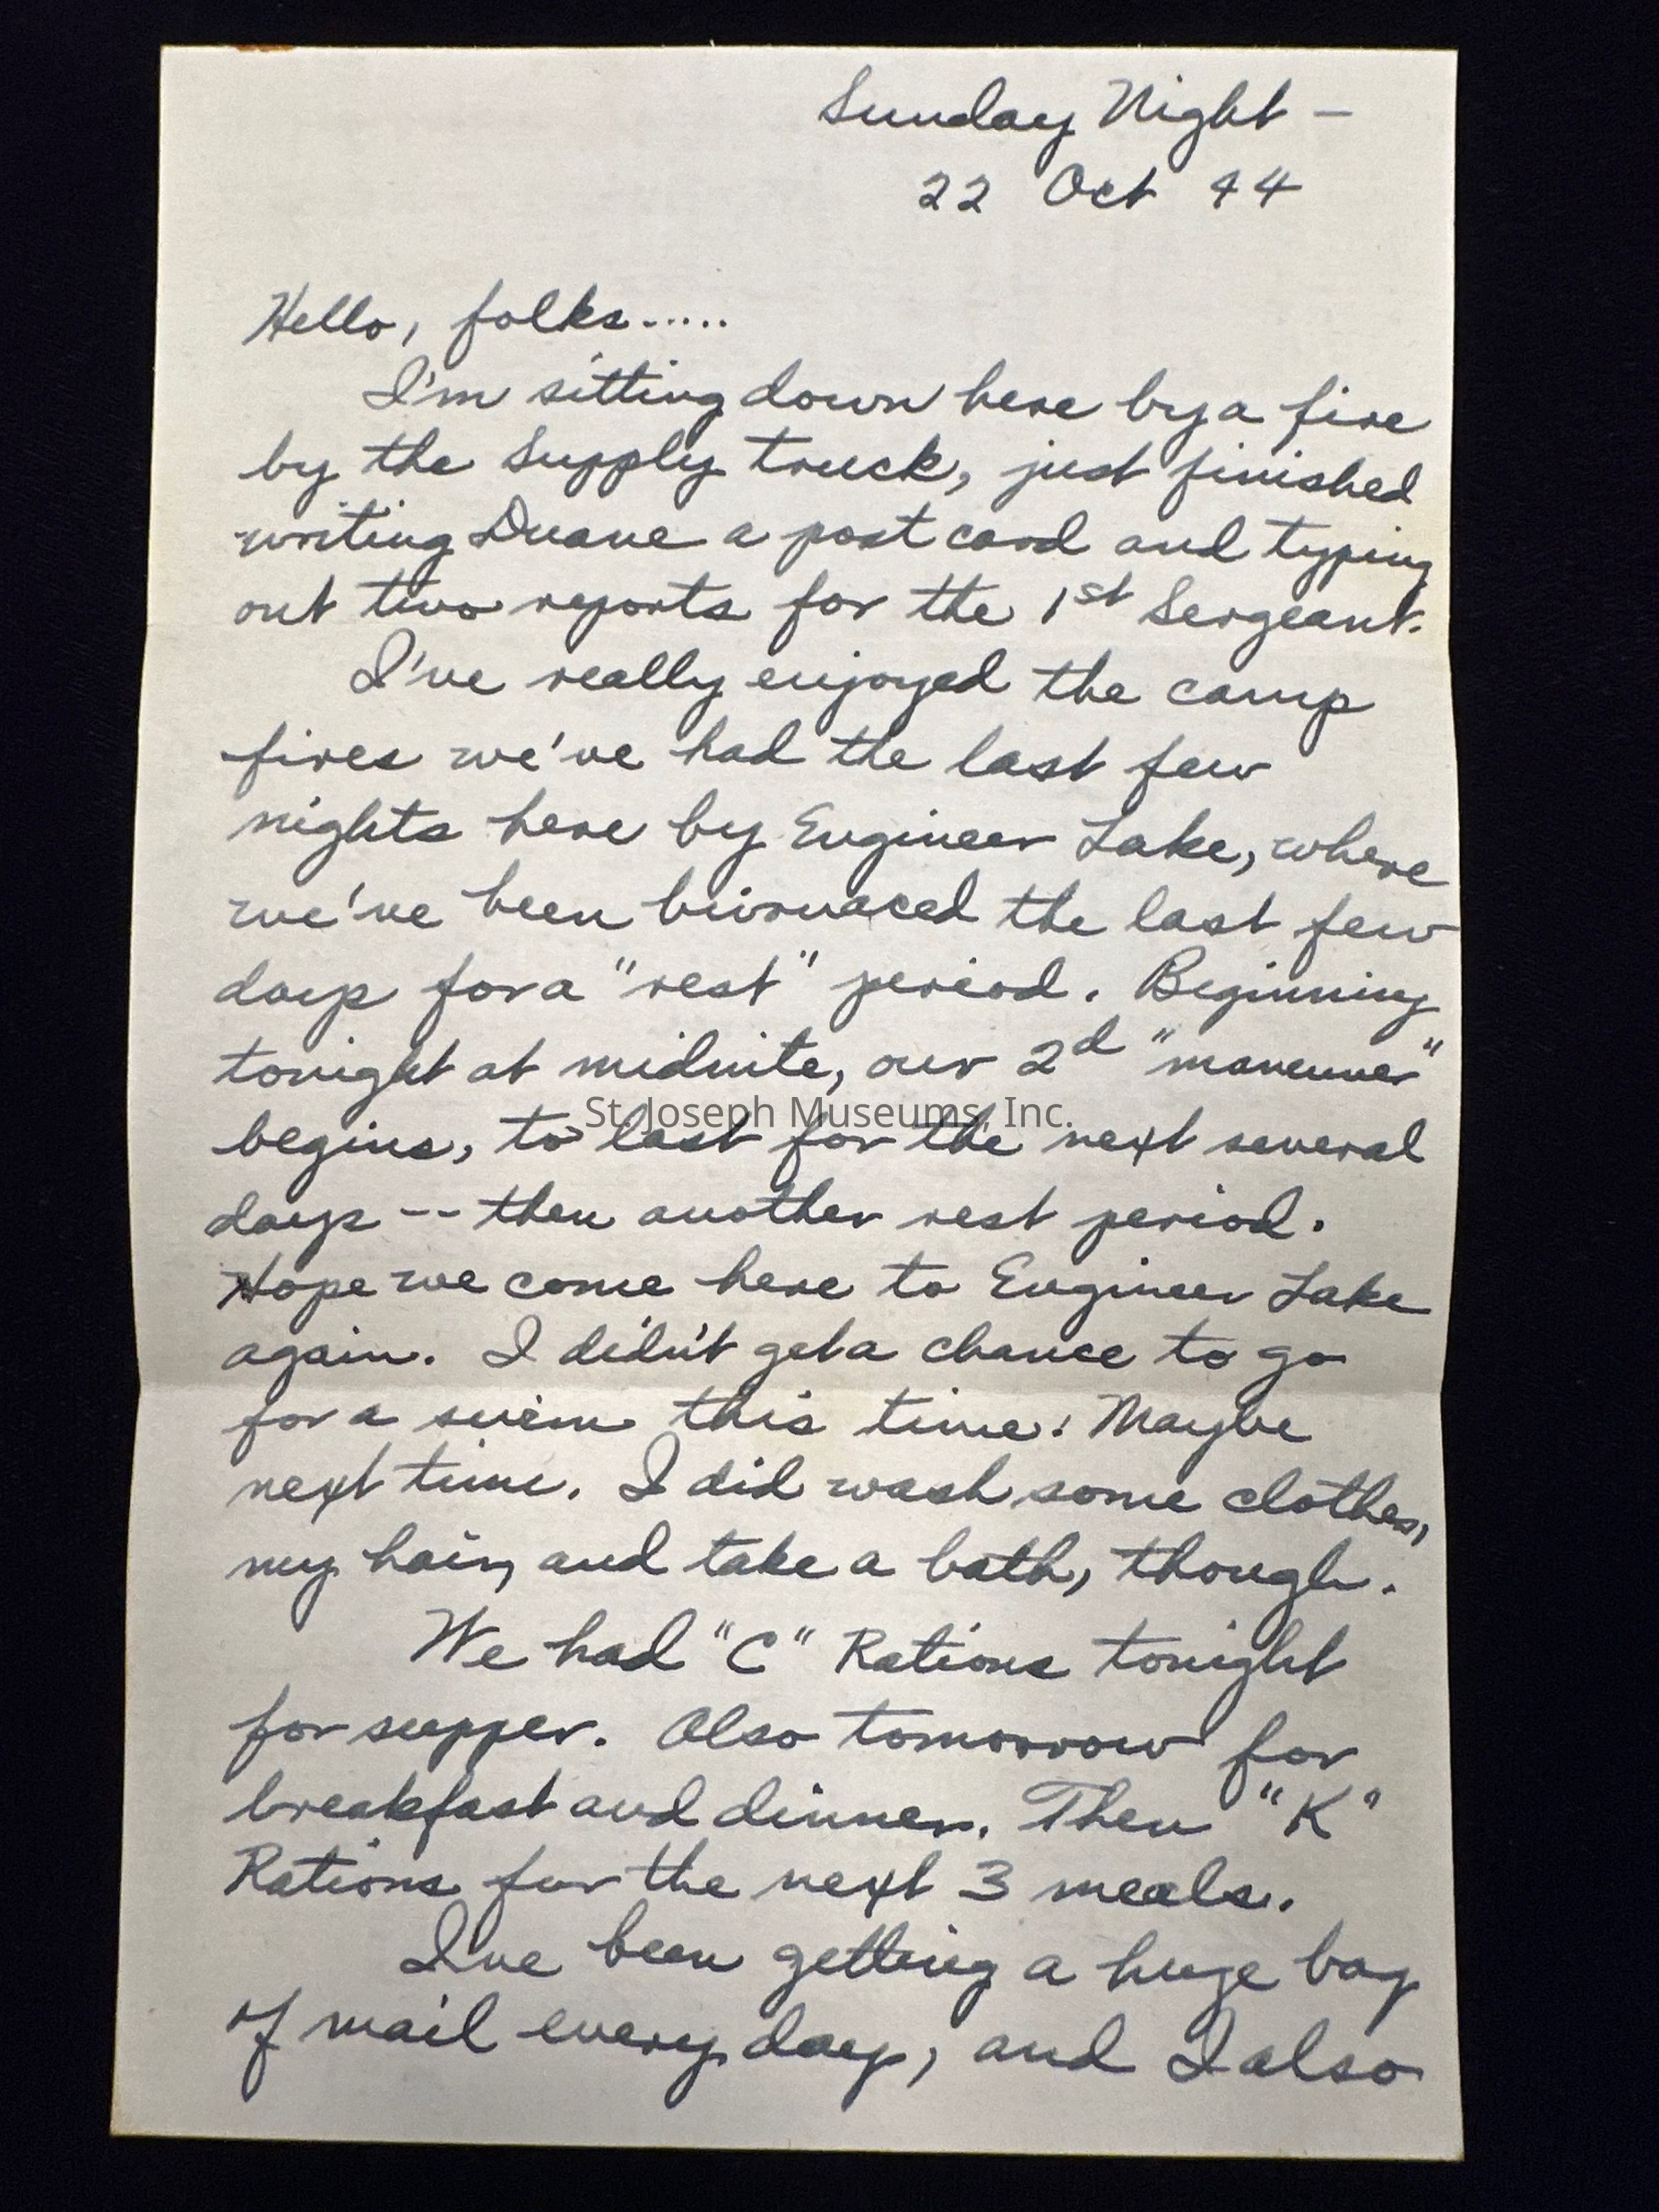 Sunday Night –
22 Oct 44
Hello, folks.....
I'm sitting down here by a fire
by the Supply truck, just finished
writing Duane a post card and typing
out two reports for the 1st Sergeant.
I've really enjoyed the camp
fires we've had the last few
nights here by Engineer Lake, where
we've been bivouaced the last few
days for a "rest" period. Beginning
tonight at midnite, our 2d "maneuver"
begins, to last for the next several
days -- then another rest period.
Hope we come here to Engineer Lake
again. I didn't get a chance to go
for a swim this time! Maybe
next time. I did wash some clothes,
my hair, and take a bath, though.
We had "C" Rations tonight
for supper. Also tomorrow for
breakfast and dinner. Then "K"
Rations for the next 3 meals.
I've been getting a huge bag
of mail every day, and I also
St. Joseph Museums, Inc.